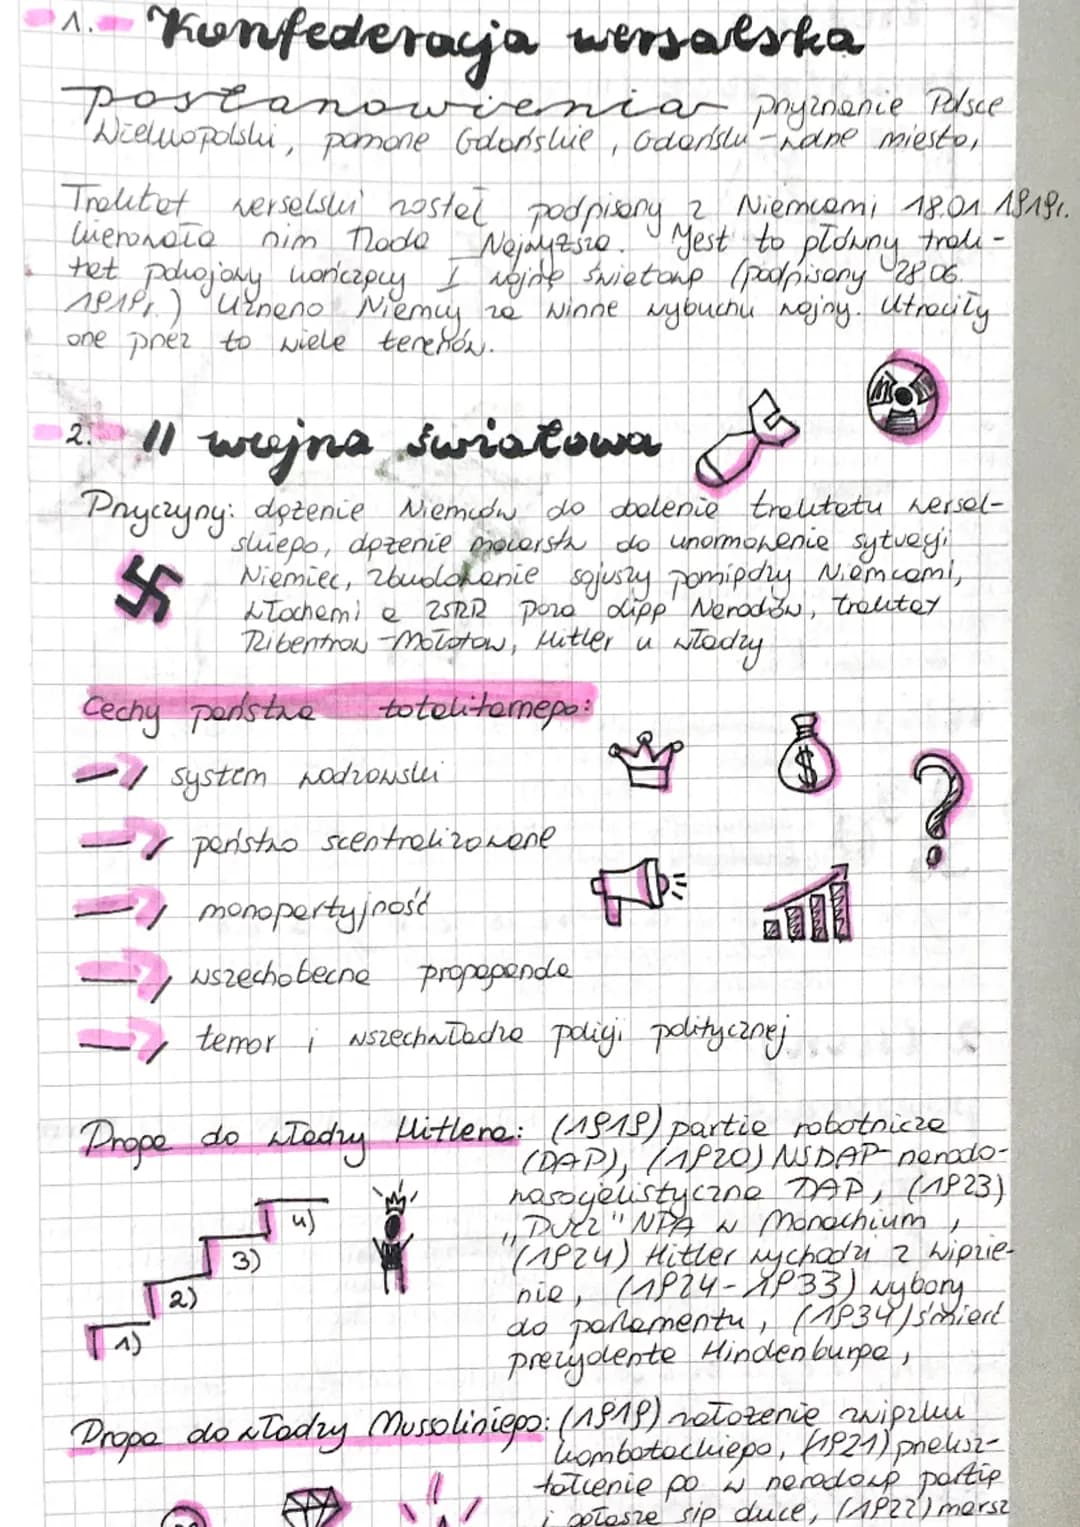 1. Konfederacja wersalska
postanowienia przyznanie Polsce
Wielkopolski, pomorze Gdańskie, Gdańsk - wolne miasto,
Traktat werselski został podpisany z Niemcami 18.01.1919r.
kierowała nim Rada Najwyższa. Jest to główny trak-
tat pokojowy kończący I wojnę światową (podpisany 28.06.
1919r.) Uznano Niemcy za winne wybuchu wojny. Utraciły
one przez to wiele terenów.
2. II wojna światowa
Przyczyny: dążenie Niemców do obalenia traktatu wersal-
skiego, dążenie mocarstw do unormowania sytuacji
Niemiec, zbudowanie sojuszy pomiędzy Niemcami,
Włochami a ZSRR poza Ligą Narodów, traktat
Ribentrow - Mołotow, Hitler u władzy
Cechy państwa totalitarnego:
system wodzowski
państwo scentralizowane
monopartyjność
wszechobecna propaganda
terror i wszechwładza policji politycznej
Droga do władzy Hitlera: (1919) partia robotnicza
(DAP), (1920) NSDAP narodo-
wasocjalistyczna DAP, (1923)
"Pucz" NPA w Monachium,
(1924) Hitler wychodzi z więzie-
nia, (1924-1933) wybory
1) 2) 3) 4)
do parlamentu, (1934) śmierć
prezydenta Hindenburga,
Droga do władzy Mussoliniego: (1919) założenie związku
kombatackiego, (1921) przeksz-
tałcenie go w narodową partię
i ogłasza się duce, (1922) marsz